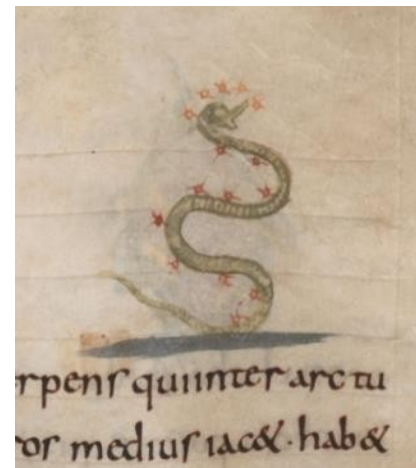 erpens qui inter arctu
os medius iac&. hab&